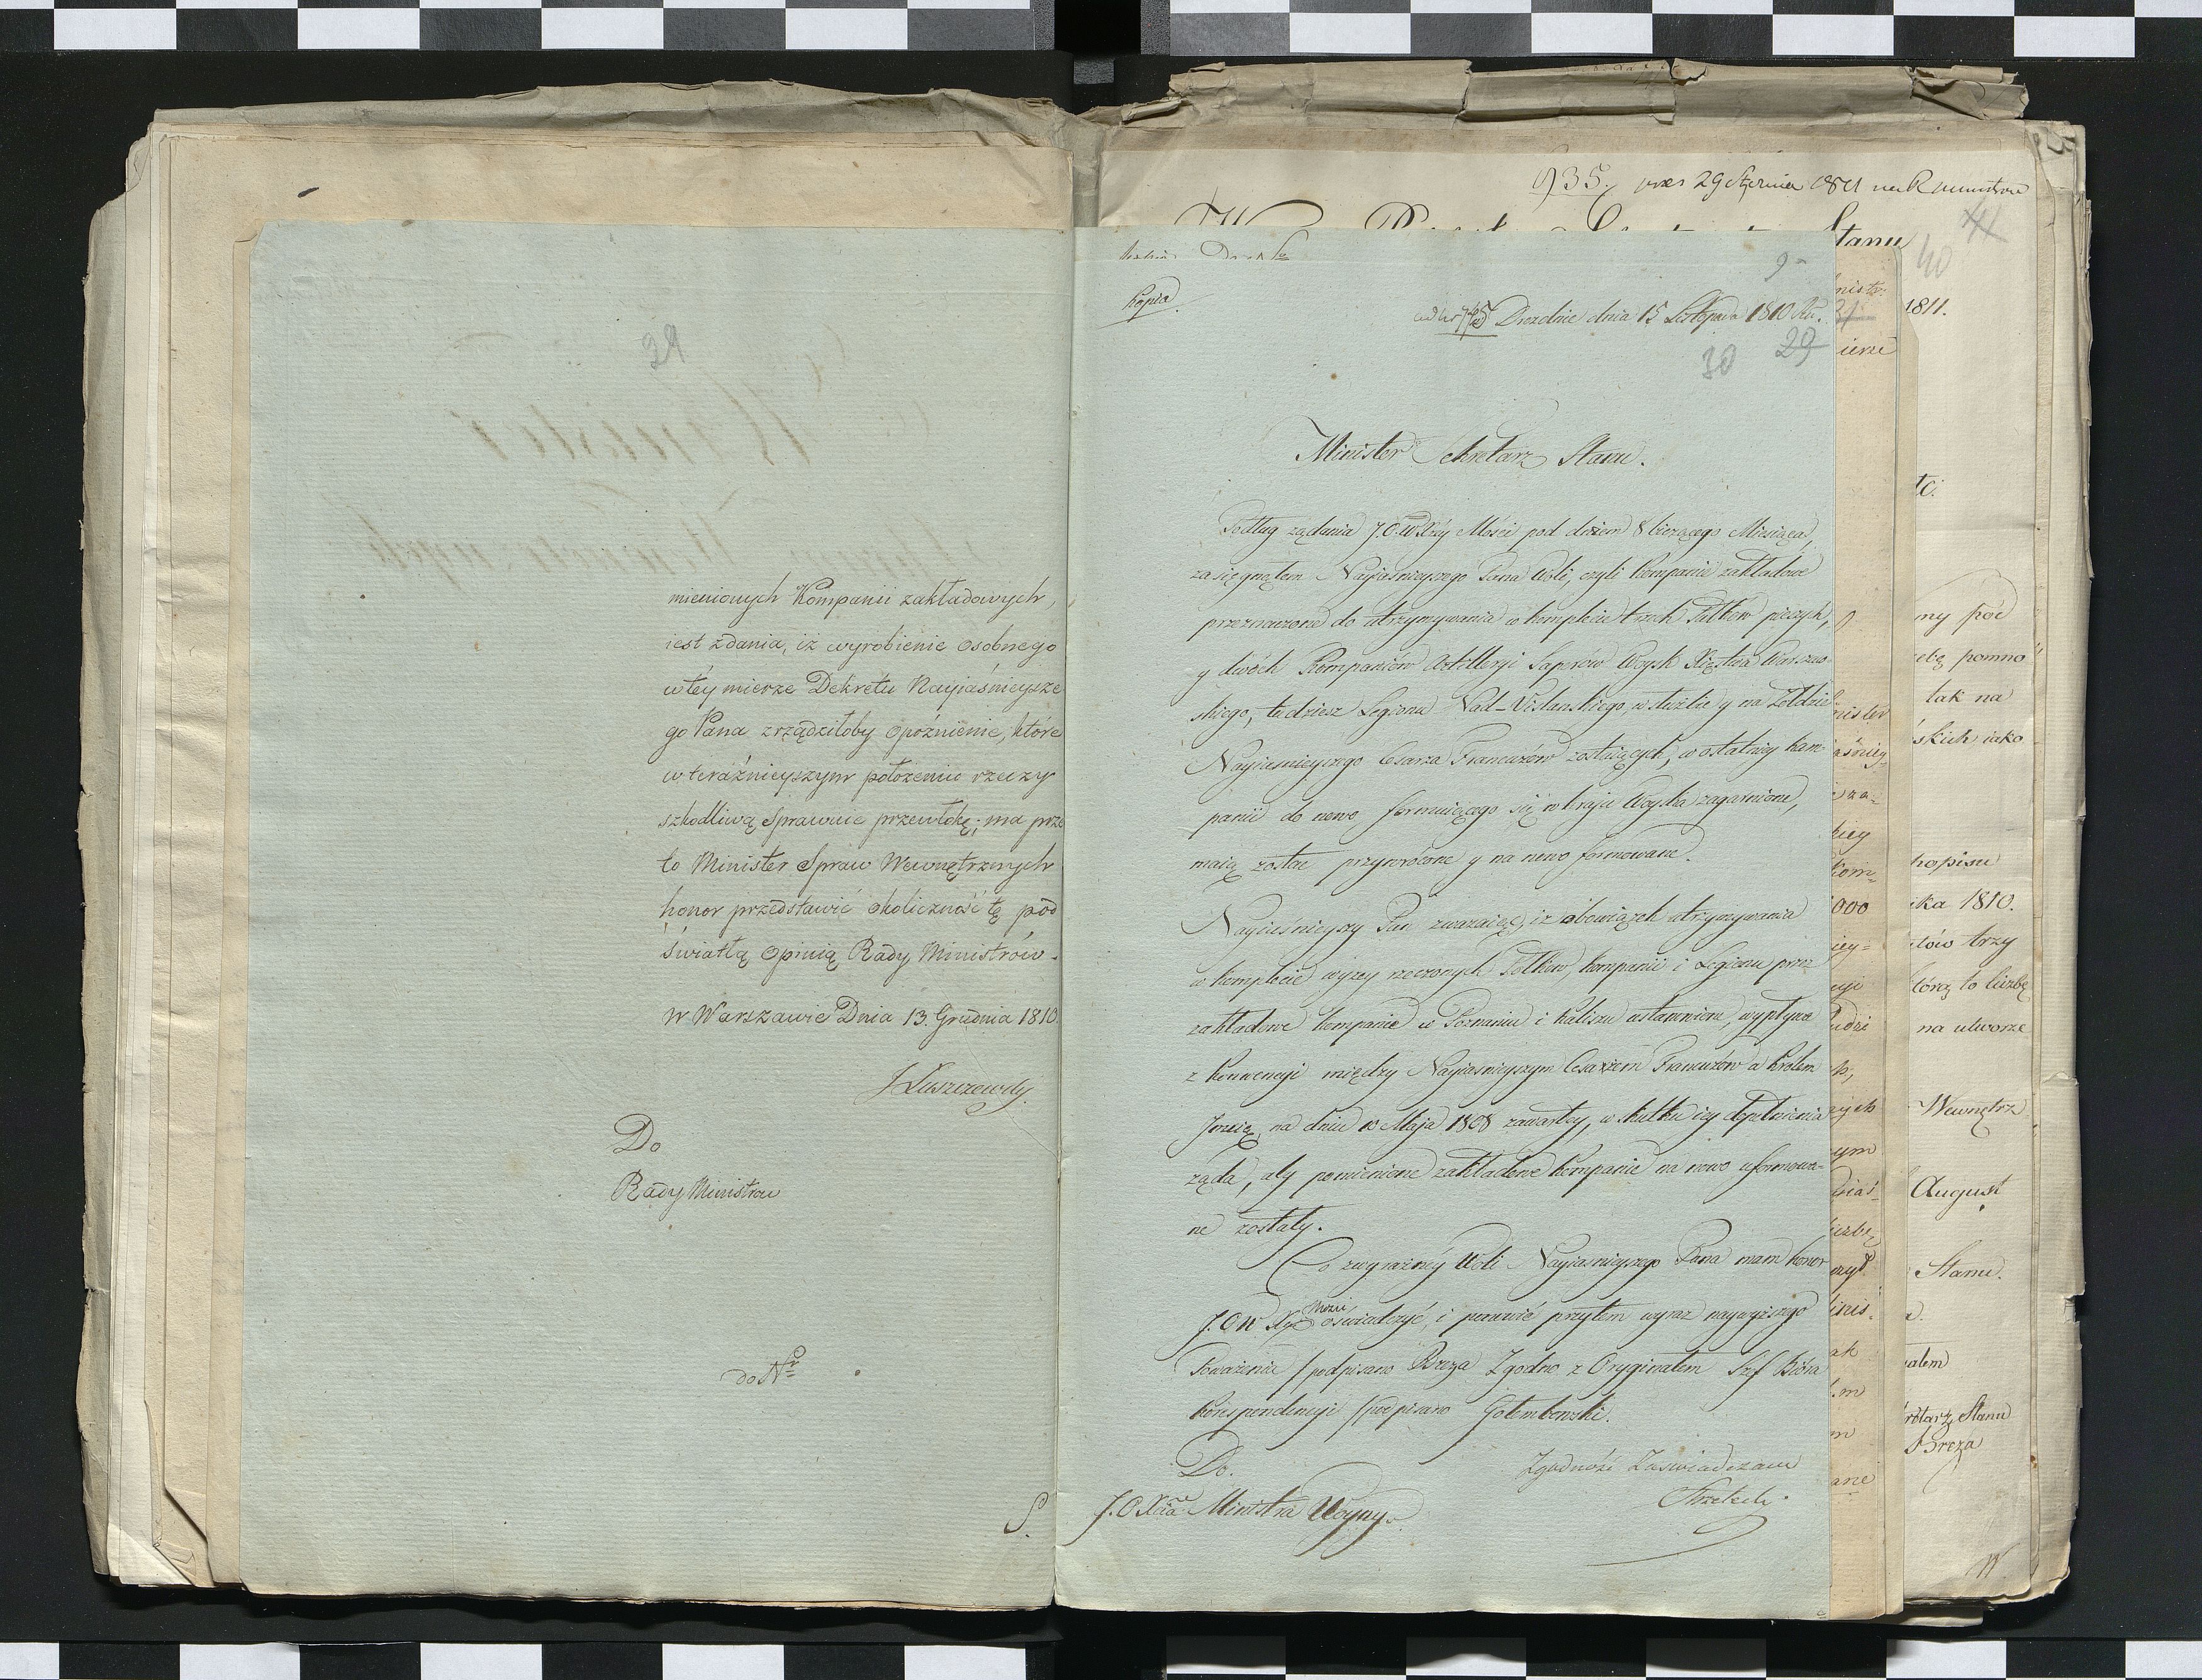 29
mienionych Kompanii zakładowych,
iest zdania, iż wyrobienie osobnego
w tey mierze Dekretu Nayiaśnieysze
go Pana zrządziłoby opóźnienie, które
w teraźnieyszym położeniu rzeczy
szkodliwą sprawuie przewłokę; ma prze
to Minister Spraw Wewnętrznych
honor przedstawić okoliczność tę pod
światłą opinią Rady Ministrów.
w Warszawie Dnia 13. Grudnia 1810.
JŁuszczewski
Do
Rady Ministrow
do Nr
S.
935.
29 Stycznia 1811
Stanu
41
40
Kopia
Dreznie dnia 15 Listopada 1810 Ru.
30 29
Minister Sekretarz Stanu.
Podług żądania J.O.W.Xcéy Mości pod dniem 8 bieżącego Miesiąca,
zasięgnąłem Nayiaśnieyszego Pana Woli, czyli Kompanie zakładowe
przeznaczone do utrzymywania w komplecie trzech Pułków pieszych,
y dwóch Kompaniów Artilleryi Saperów Woysk Xięstwa Warszaw
skiego, tudziesz Legionu Nad-Vislanskiego, w służbie y na Żołdzie
Nayiasnieyszego Cesarza Francuzów zostaiących, w ostatniey kam
panii do nowo formuiącego się w kraju Woyska zagarnione,
maią zostać przywrócone y na nowo formowane.
Nayiaśnieyszy Pan zwazaiąc, iz obowiązek utrzymywania
w komplecie wyżey rzeczonych Pułków, kompanii i Legionu przez
zakładowe kompanie w Poznaniu i Kaliszu ustanowione, wypływa
z Konwencyi między Nayiasnieyszym Cesarzem Francuzów a Królem
Jmcią na dniu 10 Maja 1808 zawartey, w skutku iey dopełnienia
żąda, aby pomienione zakładowe kompanie na nowo uformowa-
ne zostały.
Co zwyraźnéy Woli Nayiasnieyszego Pana mam honor
J.O.W Xcéy Mości oswiadczyć, i ponowić przytem wyraz naywyższego
Poważenia /podpisano Breza Zgodno z Oryginałem Szef Bióra
Korespondencyi /podpisano Gołembowski.
Do.
J.O Xcia Ministra Woyny.
Zgodność Zaswiadczam
1811.
tc.
ny pod
pomno
tak na
skich iako
hopisu
ka 1810.
tów trzy
tórą to liczbę
na utworze
Wewnętrz
August
Stanu.
Stanu
Breza